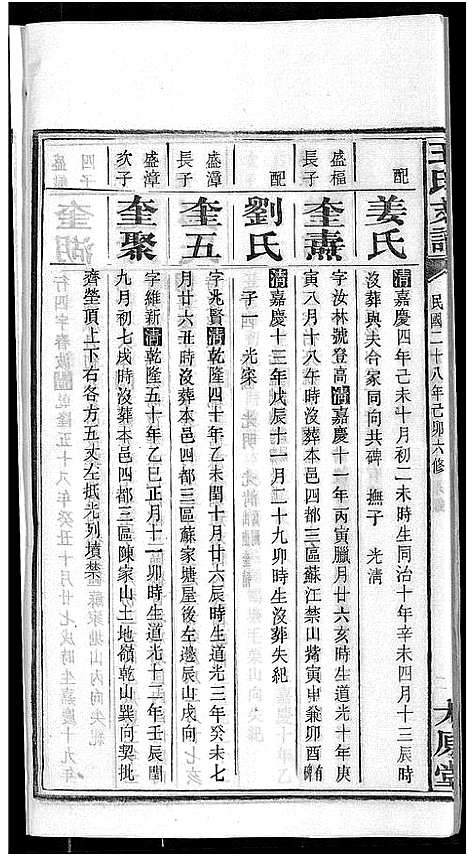 王氏支譜
民國二十八年己卯六修
太原堂
配
姜氏
清嘉慶四年己未十月初二未時生同治十年辛未四月十三辰時
沒葬與夫合冢同向共碑 撫子 光清
盛福
長子
奎燾
字汝林號登高清嘉慶十一年丙寅臘月廿六亥時生道光十年庚
寅八月十八午時沒葬本邑四都三區蘇江禁山觜寅申兼卯酉有碑
配
劉氏
清嘉慶十三年戊辰十一月二十九卯時生沒葬失紀
子一 光宷
盛漳
長子
奎五
字兆賢清乾隆四十年乙未閏十月廿六辰時生道光三年癸未七
月廿六丑時沒葬本邑四都三區蘇家塘屋後左邊辰山戌向
盛漳
次子
奎聚
字維新清乾隆五十年乙巳正月十一卯時生道光十二年壬辰閏
九月初七戌時沒葬本邑四都三區陳家山土地嶺乾山巽向契批
齊塋頂上下右各方五丈左抵光列墳禁